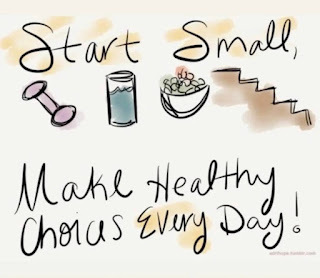 Start Small,
Make Healthy
Choices Every Day!